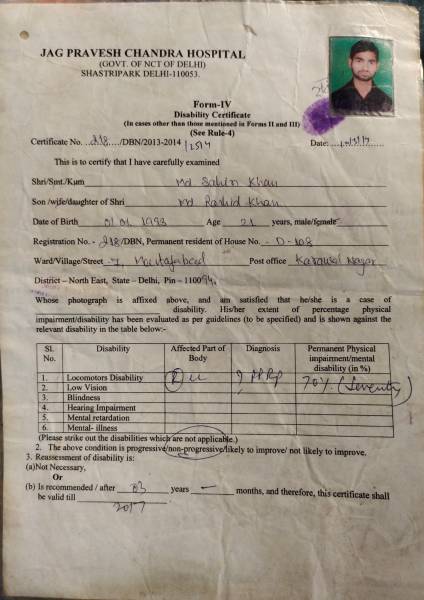 JAG PRAVESH CHANDRA HOSPITAL
(GOVT. OF NCT OF DELHI)
SHASTRIPARK DELHI-110053.
Form-IV
Disability Certificate
(In cases other than those mentioned in Forms II and III)
(See Rule-4)
Certificate No. 218 /DBN/2013-2014 Date:
This is to certify that I have carefully examined
Shri/Smt./Kum Md Sahin Khan
Son /wife/daughter of Shri Md Rashid Khan
Date of Birth 01.01.1993 Age 21 years, male/female
Registration No. - 218/DBN, Permanent resident of House No. - D-108
Ward/Village/Street -7, Mustafabad Post office Karawal Nagar
District – North East, State – Delhi, Pin – 110094.
Whose photograph is affixed above, and am satisfied that he/she is a case of
disability. His/her extent of percentage physical
impairment/disability has been evaluated as per guidelines (to be specified) and is shown against the
relevant disability in the table below:-
Sl. No. Disability Affected Part of Body Diagnosis Permanent Physical impairment/mental disability (in %)
1. Locomotors Disability 70% (Seventy)
2. Low Vision
3. Blindness
4. Hearing Impairment
5. Mental retardation
6. Mental- illness
(Please strike out the disabilities which are not applicable.)
2. The above condition is progressive/non-progressive/likely to improve/ not likely to improve.
3. Reassessment of disability is:
(a)Not Necessary,
Or
(b) Is recommended / after 03 years — months, and therefore, this certificate shall
be valid till 2017